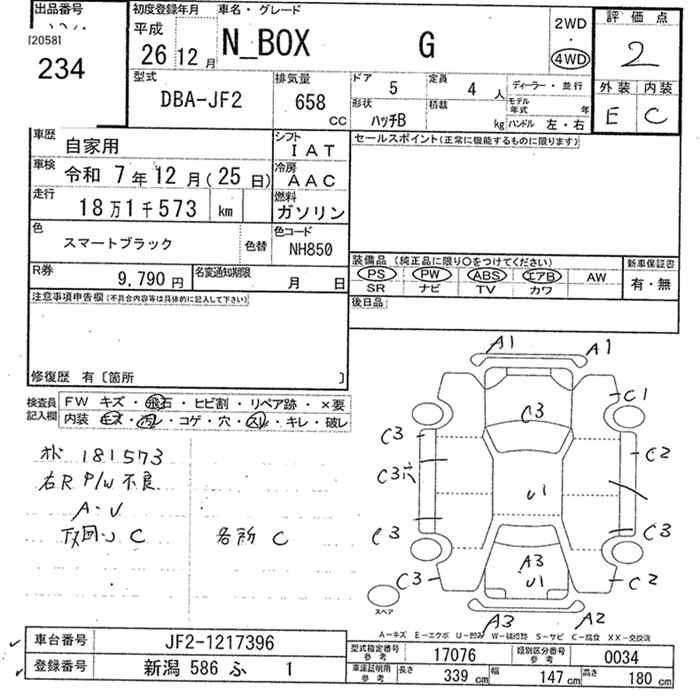 出品番号 初度登録年月 車名・グレード 評価点
[2058]
234
平成
26 12月
N_BOX G
2WD
・
4WD
2
型式 排気量 ドア 定員 ディーラー・並行 外装 内装
DBA-JF2 658 CC 5 4人
形状 積載 モデル年式 年
ハッチB kg ハンドル 左・右
E C
車歴 自家用 シフト IAT セールスポイント(正常に機能するものに限ります)
車検 令和 7年12月(25日) 冷房 AAC
走行 18万1千573 km 燃料 ガソリン
色 スマートブラック 色替 色コード NH850
装備品 (純正品に限り○をつけてください) 新車保証書
PS PW ABS エアB AW 有・無
SR ナビ TV カワ
R券 9,790円 名変通知期限 月 日
後日品
注意事項申告欄(不具合内容等は具体的に記入して下さい)
修復歴 有〔箇所 〕
検査員記入欄 FW キズ・飛石・ヒビ割・リペア跡・×要
内装 キズ・汚レ・コゲ・穴・スレ・キレ・破レ
オド 181573
右R P/W 不良
A・U
下回り C 各所 C
A1 A1
C1
C3
C3 C2
C3穴
U1
C3 C3
A3
C3 U1 C2
スペア
A3 A2
A—キズ E—エクボ U—凹み W—補修跡 S—サビ C—腐食 XX—交換済
車台番号 JF2-1217396
型式指定番号 参考 17076 類別区分番号 参考 0034
登録番号 新潟 586 ふ 1
車庫証明用 参考 長さ 339cm 幅 147cm 高さ 180cm